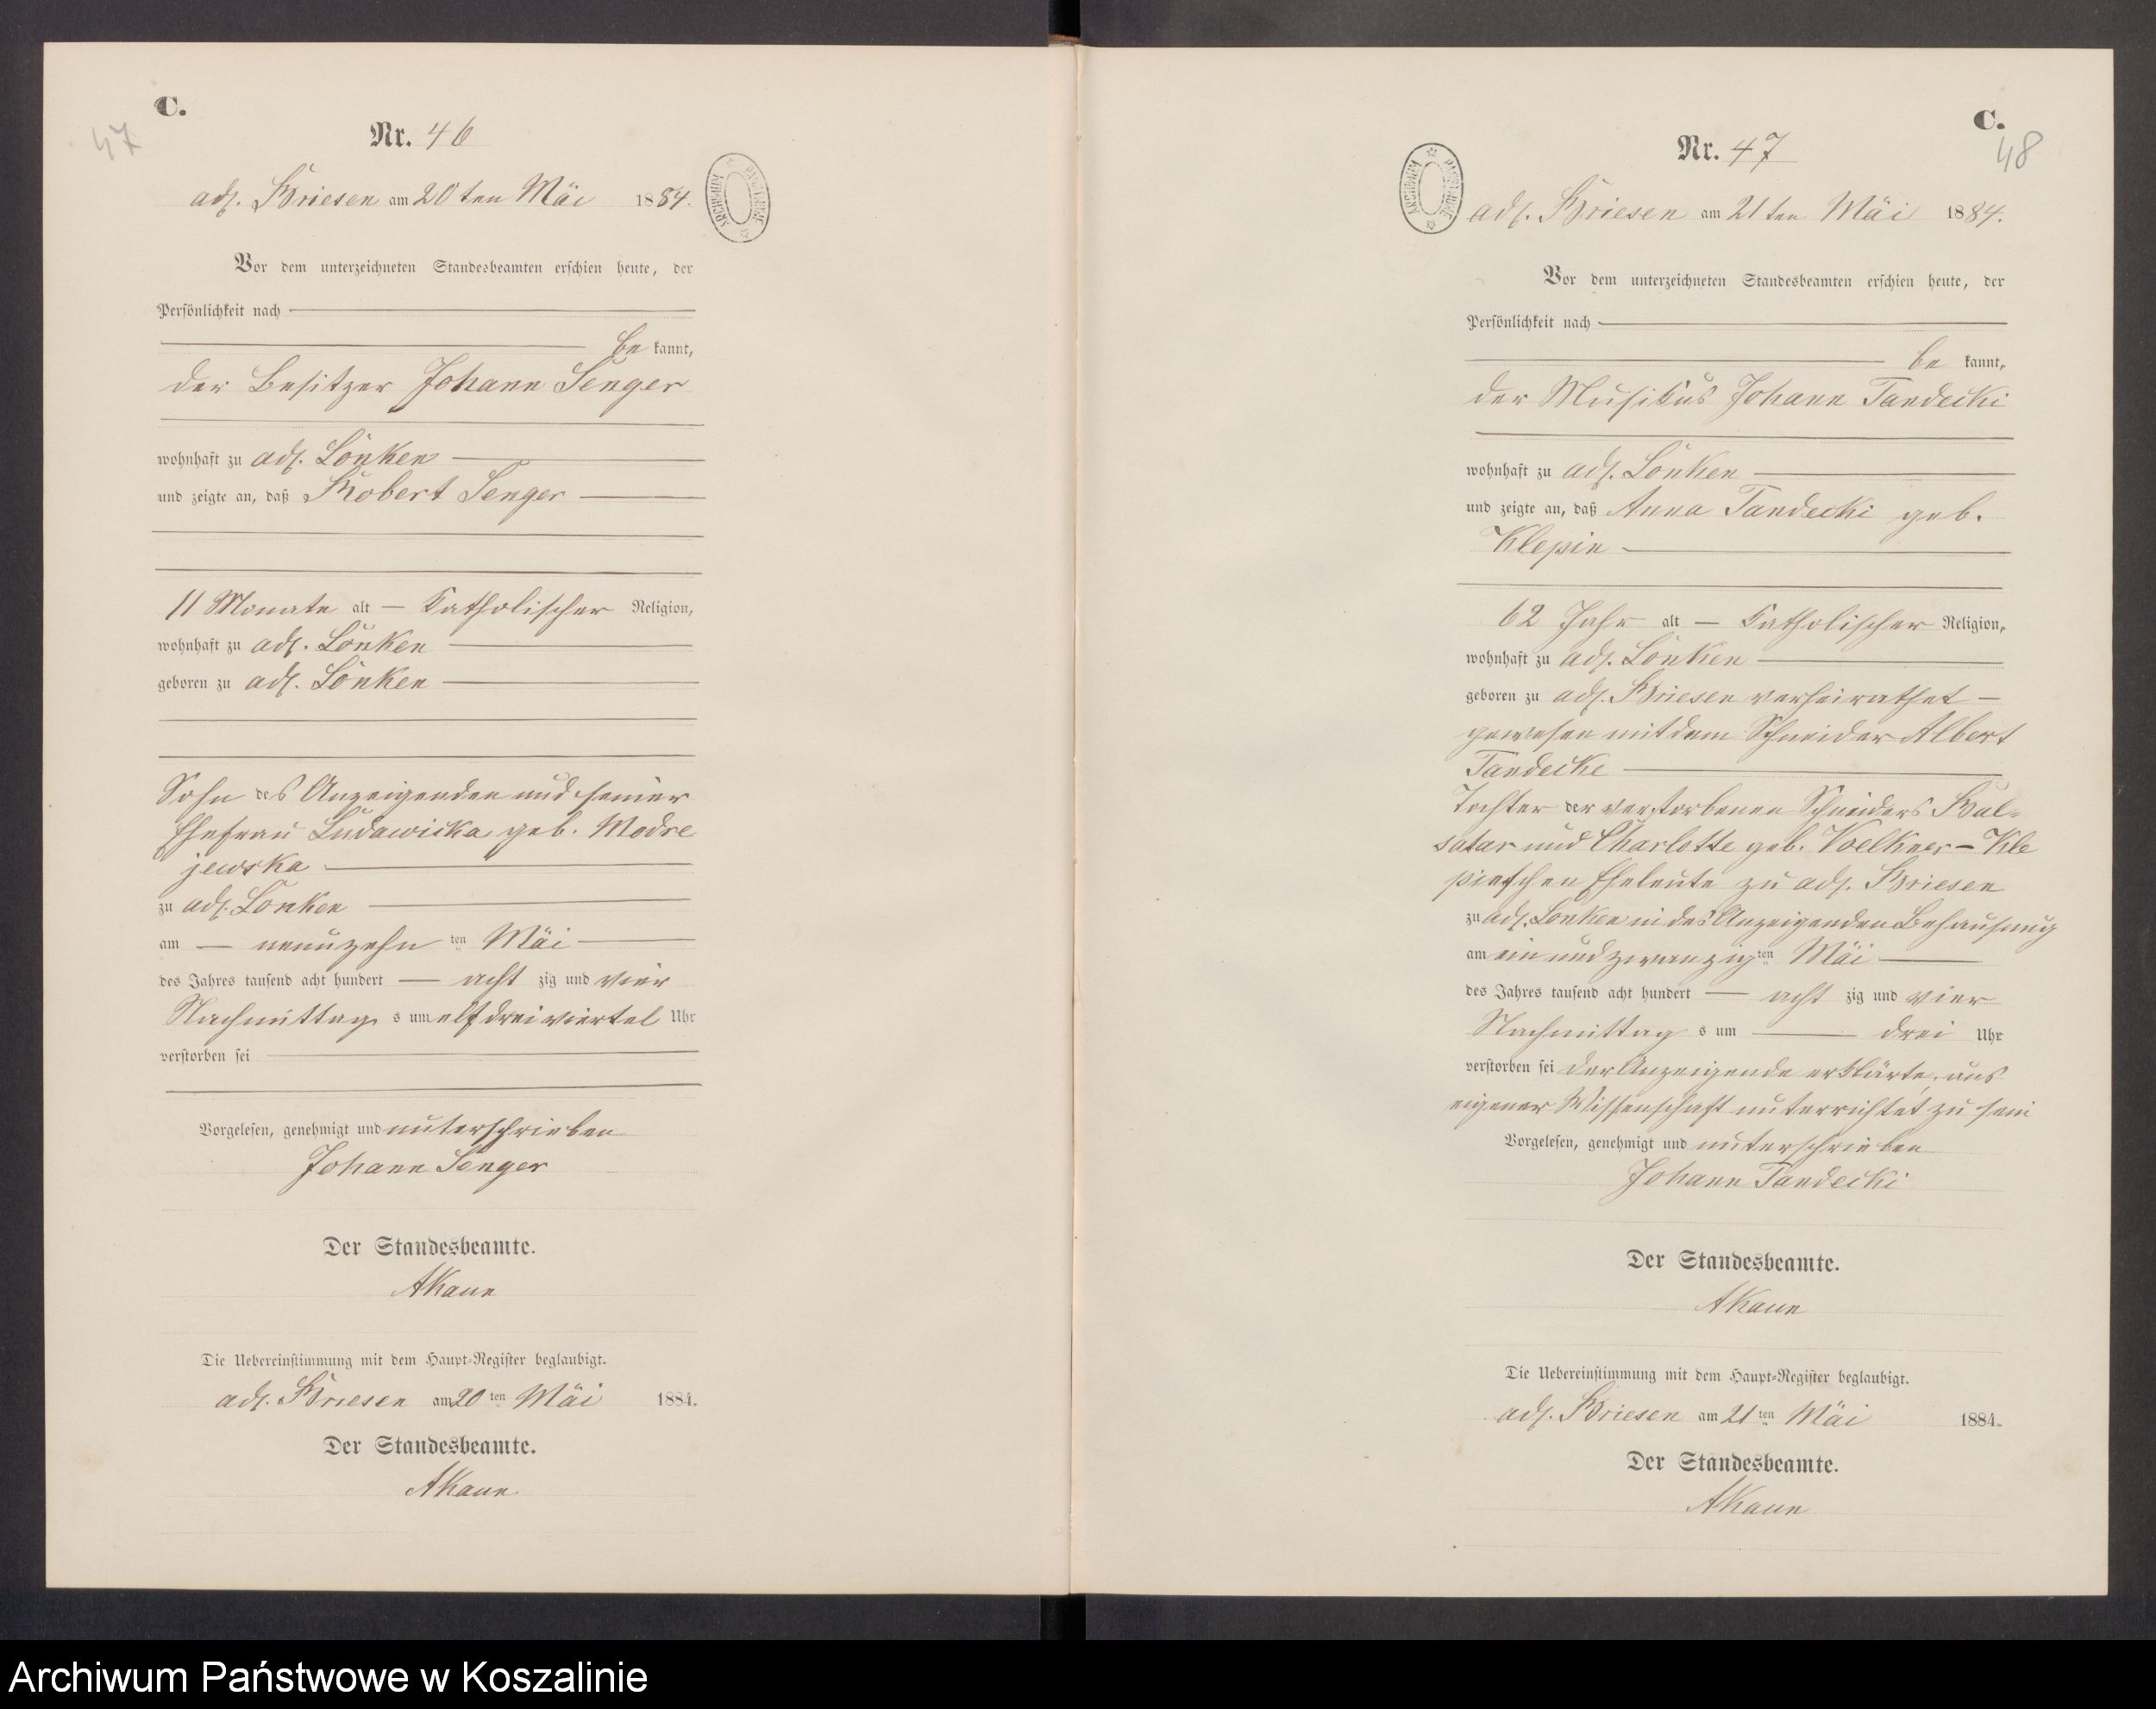 C.
47
Nr. 46
adl. Briesen am 20ten Mai 1884.
ARCHIWUM PAŃSTWOWE
Vor dem unterzeichneten Standesbeamten erschien heute, der
Persönlichkeit nach
be kannt,
der Besitzer Johann Senger
wohnhaft zu adl. Lonken
und zeigte an, daß Robert Senger
11 Monate alt – katholischer Religion,
wohnhaft zu adl. Lonken
geboren zu adl. Lonken
Sohn des Anzeigenden und seiner
Ehefrau Ludawicka geb. Modre
jewska
zu adl. Lonken
am – neunzehn ten Mai
des Jahres tausend acht hundert – acht zig und vier
Nachmittag s um elf dreiviertel Uhr
verstorben sei
Vorgelesen, genehmigt und unterschrieben
Johann Senger
Der Standesbeamte.
AKaun
Die Uebereinstimmung mit dem Haupt-Register beglaubigt.
adl. Briesen am 20 ten Mai 1884.
Der Standesbeamte.
AKaun
C.
48
Nr. 47
ARCHIWUM PAŃSTWOWE
adl. Briesen am 21ten Mai 1884.
Vor dem unterzeichneten Standesbeamten erschien heute, der
Persönlichkeit nach
be kannt,
der Musikus Johann Tandecki
wohnhaft zu adl. Lonken
und zeigte an, daß Anna Tandecki geb.
Klepin
62 Jahr alt – katholischer Religion,
wohnhaft zu adl. Lonken
geboren zu adl. Briesen verheirathet –
gewesen mit dem Schneider Albert
Tandecke
Tochter der verstorbenen Schneiders Bal-
satar und Charlotte geb. Voelkner – Kle
pinschen Eheleute zu adl. Briesen
zu adl. Lonken in des Anzeigenden Behausung
am ein und zwanzig ten Mai
des Jahres tausend acht hundert – acht zig und vier
Nachmittag s um – drei Uhr
verstorben sei der Anzeigende erklärte, aus
eigener Wissenschaft unterrichtet zu sein
Vorgelesen, genehmigt und unterschrieben
Johann Tandecki
Der Standesbeamte.
AKaun
Die Uebereinstimmung mit dem Haupt-Register beglaubigt.
adl. Briesen am 21 ten Mai 1884.
Der Standesbeamte.
AKaun
Archiwum Państwowe w Koszalinie